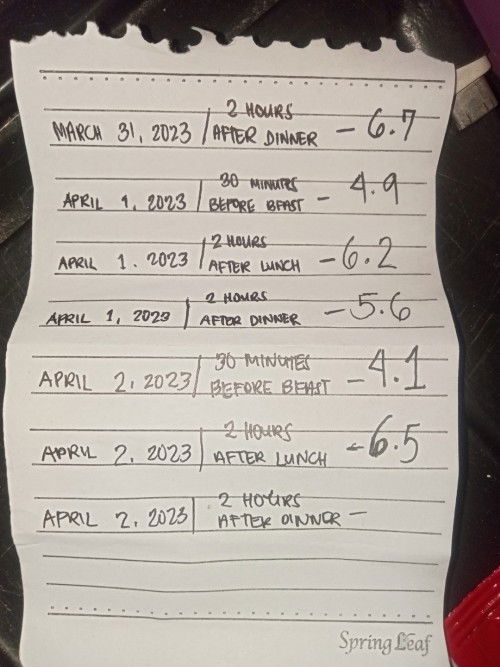 2 HOURS
MARCH 31, 2023 | AFTER DINNER – 6.7
30 MINUTES
APRIL 1, 2023 | BEFORE BFAST – 4.9
2 HOURS
APRIL 1. 2023 | AFTER LUNCH – 6.2
2 HOURS
APRIL 1, 2023 | AFTER DINNER – 5.6
30 MINUTES
APRIL 2, 2023 | BEFORE BFAST – 4.1
2 HOURS
APRIL 2, 2023 | AFTER LUNCH – 6.5
2 HOURS
APRIL 2, 2023 | AFTER DINNER –
Spring Leaf